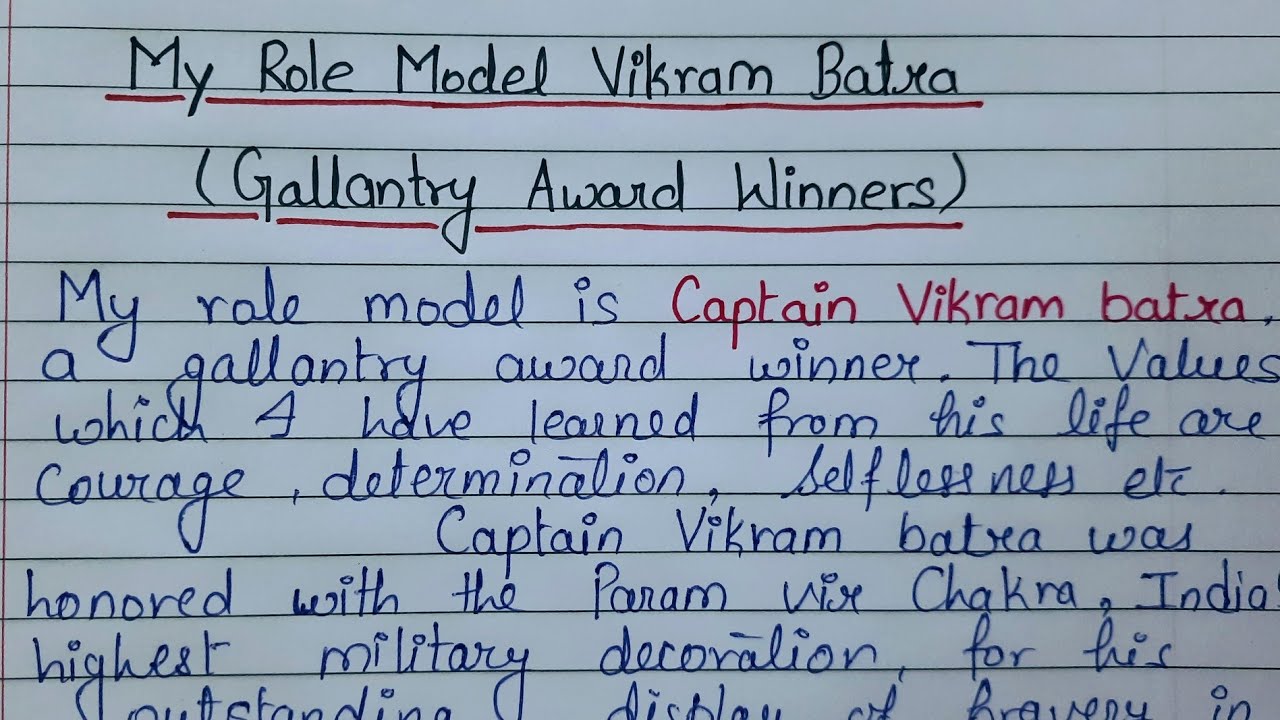 My Role Model Vikram Batra
(Gallantry Award Winners)
My role model is Captain Vikram batra,
a gallantry award winner. The Values
which I have learned from his life are
courage, determination, selflessness etc.
Captain Vikram batra was
honored with the Param vir Chakra, India'
highest military decoration, for his
outstanding display of bravery in